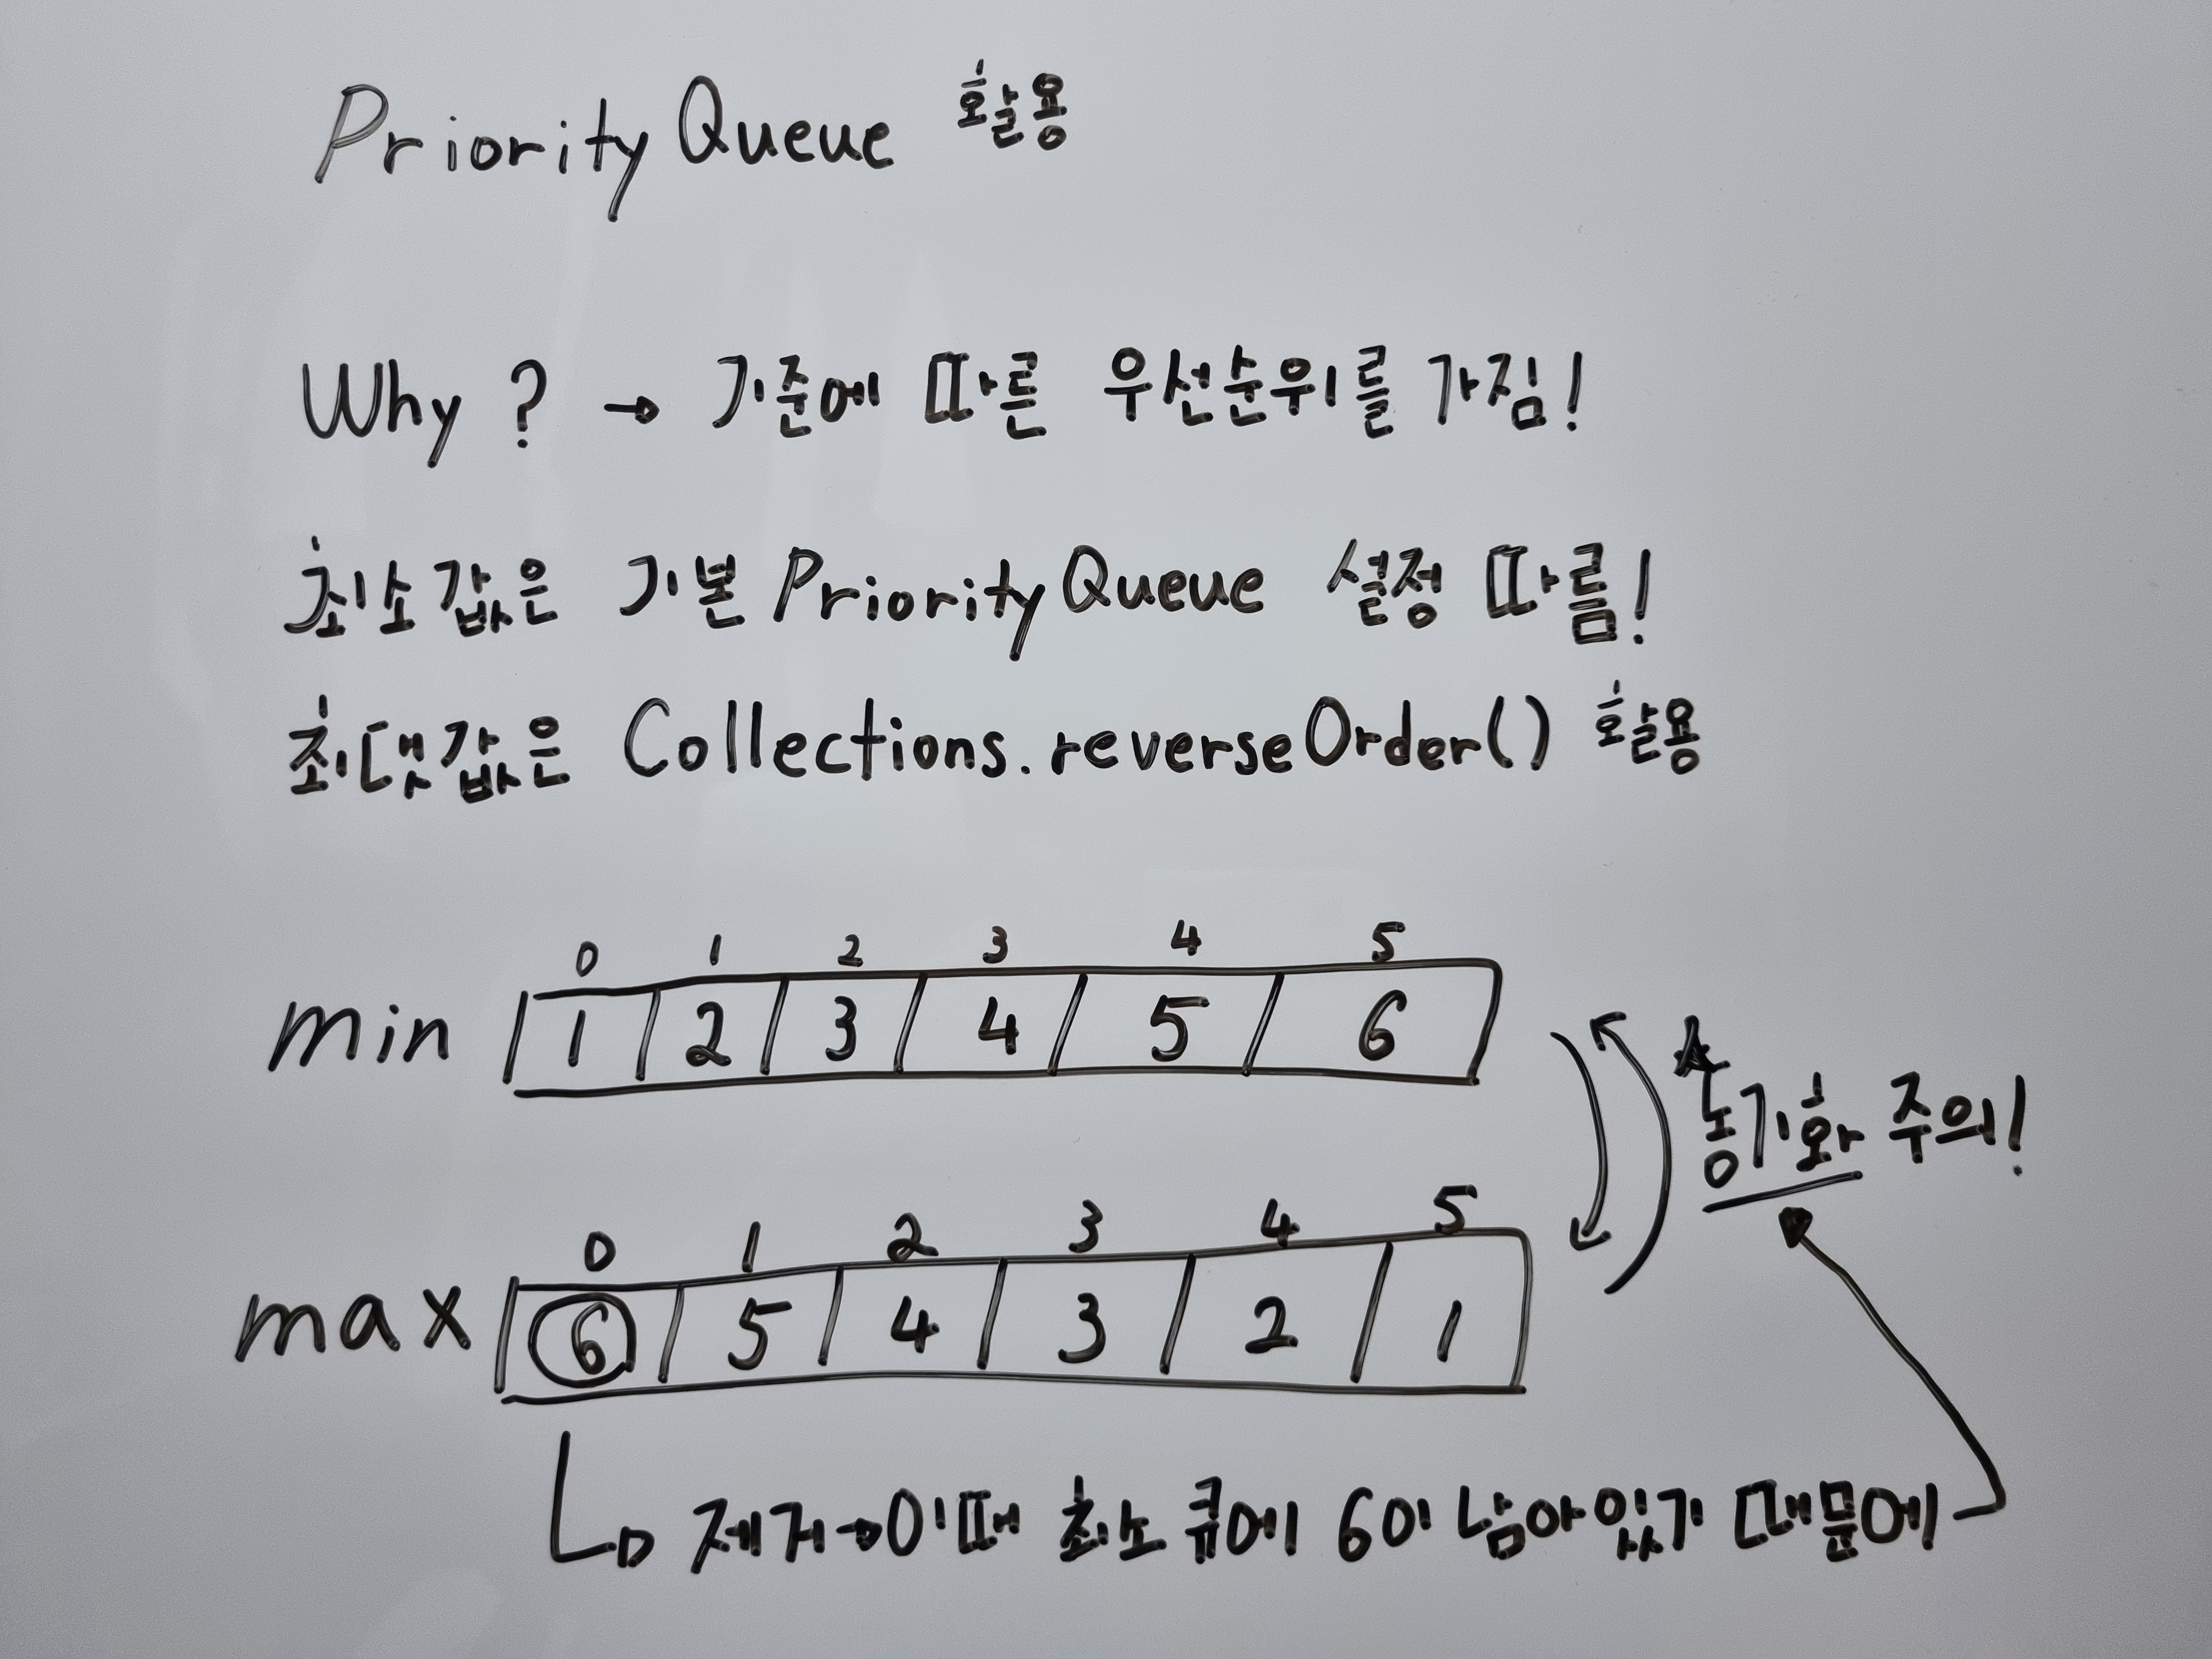 PriorityQueue 활용
Why? → 기준에 따른 우선순위를 가짐!
최소값은 기본 PriorityQueue 설정 따름!
최댓값은 Collections.reverseOrder() 활용
0 1 2 3 4 5
min 1 2 3 4 5 6
☆동기화 주의!
0 1 2 3 4 5
max 6 5 4 3 2 1
제거→이때 최소 큐에 6이 남아있기 때문에